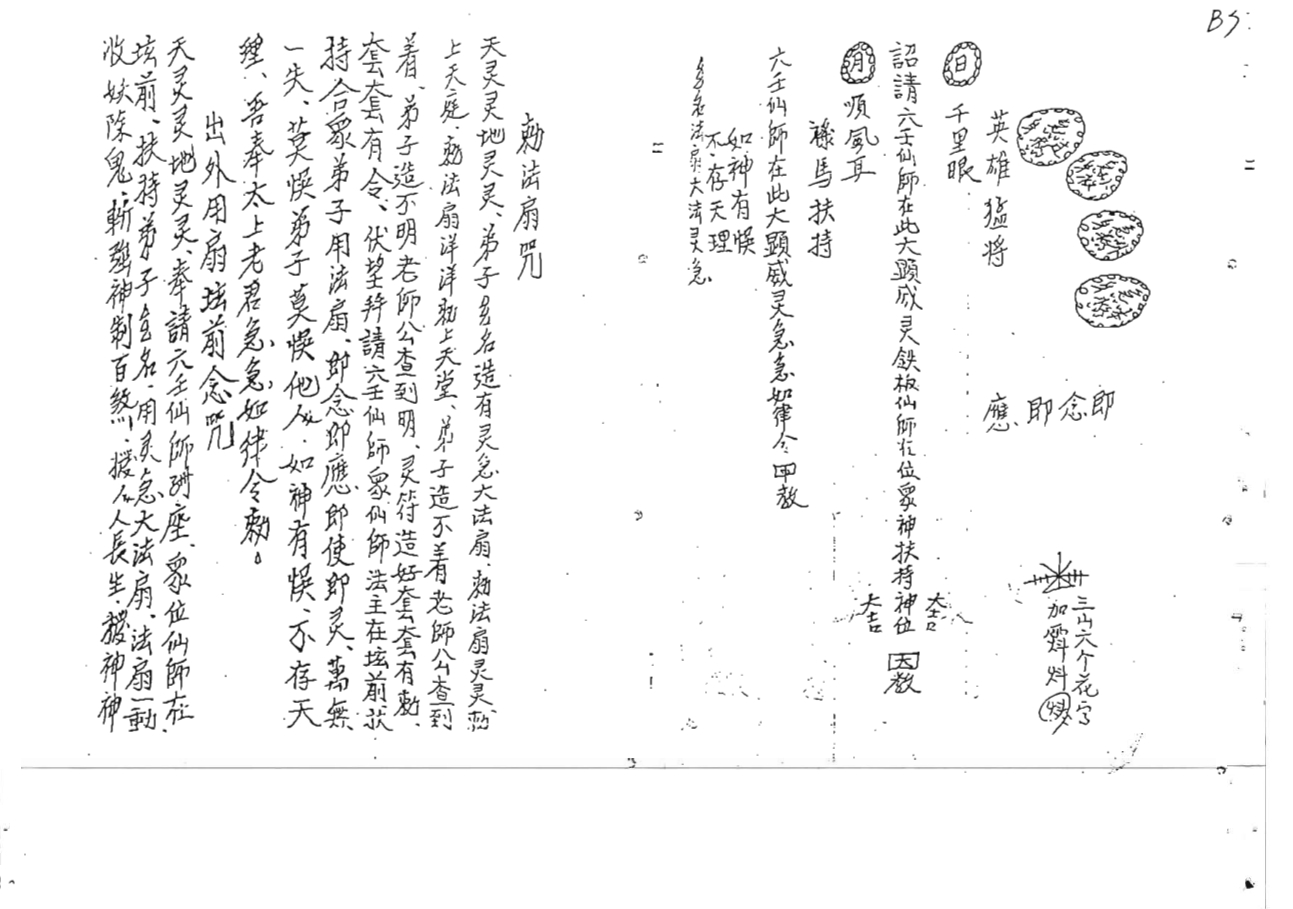 B5:
英雄猛将
即念即應
三山六个花字
加霹
日 千里眼
大吉
詔請六壬仙師在此大顕威灵鉄板仙師在位眾神扶持神位
大吉
月 順風耳
祿馬扶持
六壬仙師在此大顕威灵急急如律令
如神有悮
不存天理
大法灵急
勅法扇咒
天灵灵地灵灵、弟子名造有灵急大法扇、勅法扇灵灵、勅
上天庭、勅法扇洋洋勅上天堂、弟子造不着老師公查到
着、弟子造不明老師公查到明、灵符造好套套有勅、
套套有令、伏望拜請六壬仙師眾仙師法主在坛前扶
持合眾弟子用法扇、即念即應即使即灵、萬無
一失、莫悮弟子莫悮他人、如神有悮、不存天
理、吾奉太上老君急急如律令勅。
出外用扇坛前念咒
天灵灵地灵灵、奉請六壬仙師座、眾位仙師在
坛前、扶持弟子名、用灵急大法扇、法扇一動
收妖除鬼、斬神制百煞、人人長生、神神